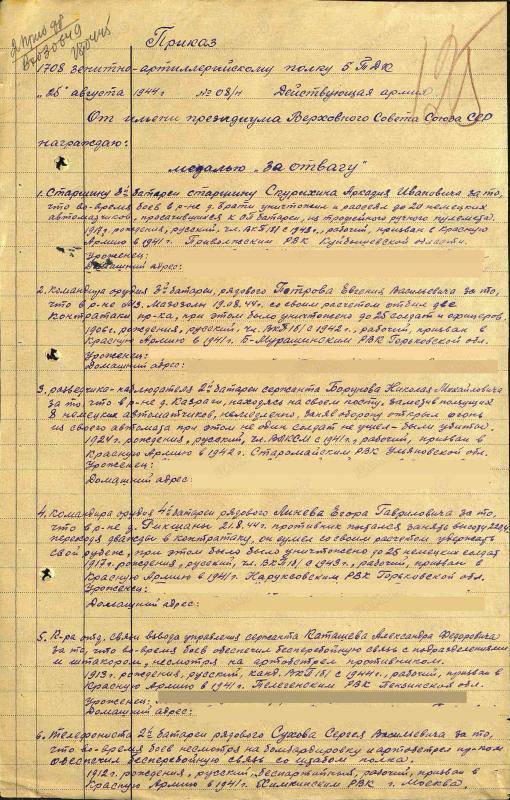 Приказ
1708 зенитно-артиллерийскому полку 5 ТАК
"25" августа 1944г №08/н Действующая армия
От имени президиума Верховного Совета Союза ССР
награждаю:
медалью "За отвагу"
1. Старшину 3й батареи старшину Скурыхина Аркадия Ивановича за то,
что во-время боев в р-не д. уничтожил и рассеял до 20 немецких
автоматчиков, просачившихся к ОП батареи, из трофейного ручного пулемета.
рождения, русский, чл. ВКП/б/ с рабочий, призван в Красную
Армию в 1941г. Приволжским РВК Куйбышевской области.
Уроженец:
Домашний адрес:
2. Командира орудия 3й батареи, рядового Петрова Евгения Васильевича за то,
что в р-не 19.08.44г. со своим расчетом отбил две
контратаки пр-ка, при этом было уничтожено до 25 солдат и офицеров,
1906г. рождения, русский, чл. ВКП/б/ с 1942г., рабочий, призван в
Красную Армию в 1941г. Б-Мурашкинским РВК Горьковской обл.
Уроженец:
Домашний адрес:
3. разведчика-наблюдателя 2й батареи сержанта Николая Михайловича
за то, что в р-не д. находясь на своем посту, заметив ползущих
8 немецких автоматчиков, немедленно, заняв оборону открыл огонь
из своего автомата при этом не один солдат не ушел - были убитом.
1924г. рождения, русский, чл. ВЛКСМ с 1941г., рабочий, призван в
Красную Армию в 1942г. Старомайским РВК Ульяновской обл.
Уроженец:
Домашний адрес:
4. Командира орудия 4й батареи рядового Линева Егора Гавриловича за то,
что в р-не д. 21.8.44г. противник пытался занять высоту
переходя дважды в контратаку, он сумел со своим расчетом удержать
свой рубеж, при этом было было уничтожено до 25 немецких солдат
1917г. рождения, русский, чл. ВКП/б/ с 1943г., рабочий, призван в
Красную Армию в 1941г. Наруксовским РВК Горьковской обл.
Уроженец:
Домашний адрес:
5. К-ра отд. связи взвода управления сержанта Каташева Александра Федоровича
за то, что во-время боев обеспечил бесперебойную связь с подразделениями
и штакором, несмотря на артобстрел противником.
1913г. рождения, русский, канд. ВКП/б/ с 1944г., рабочий, призван в
Красную Армию в 1941г. РВК Пензинской обл.
Уроженец:
Домашний адрес:
6. Телефониста 2й батареи рядового Сухова Сергея Васильевича за то,
что во-время боев несмотря на бомбардировку и артобстрел пр-ком
обеспечил бесперебойную связь со штабом полка.
1912г. рождения, русский, беспартийный, рабочий, призван в
Красную Армию в 1941г. Химкинским РВК г. Москва.